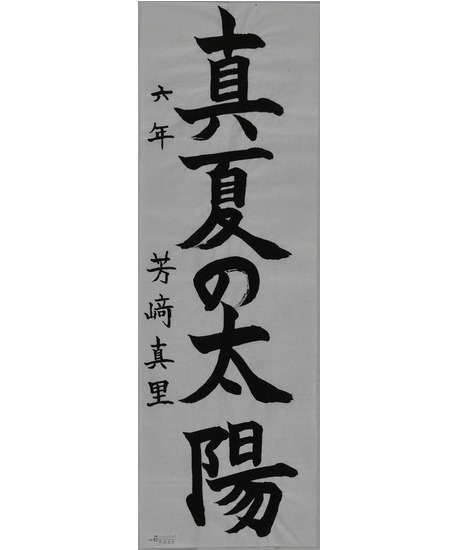 真夏の太陽
六年 芳﨑真里